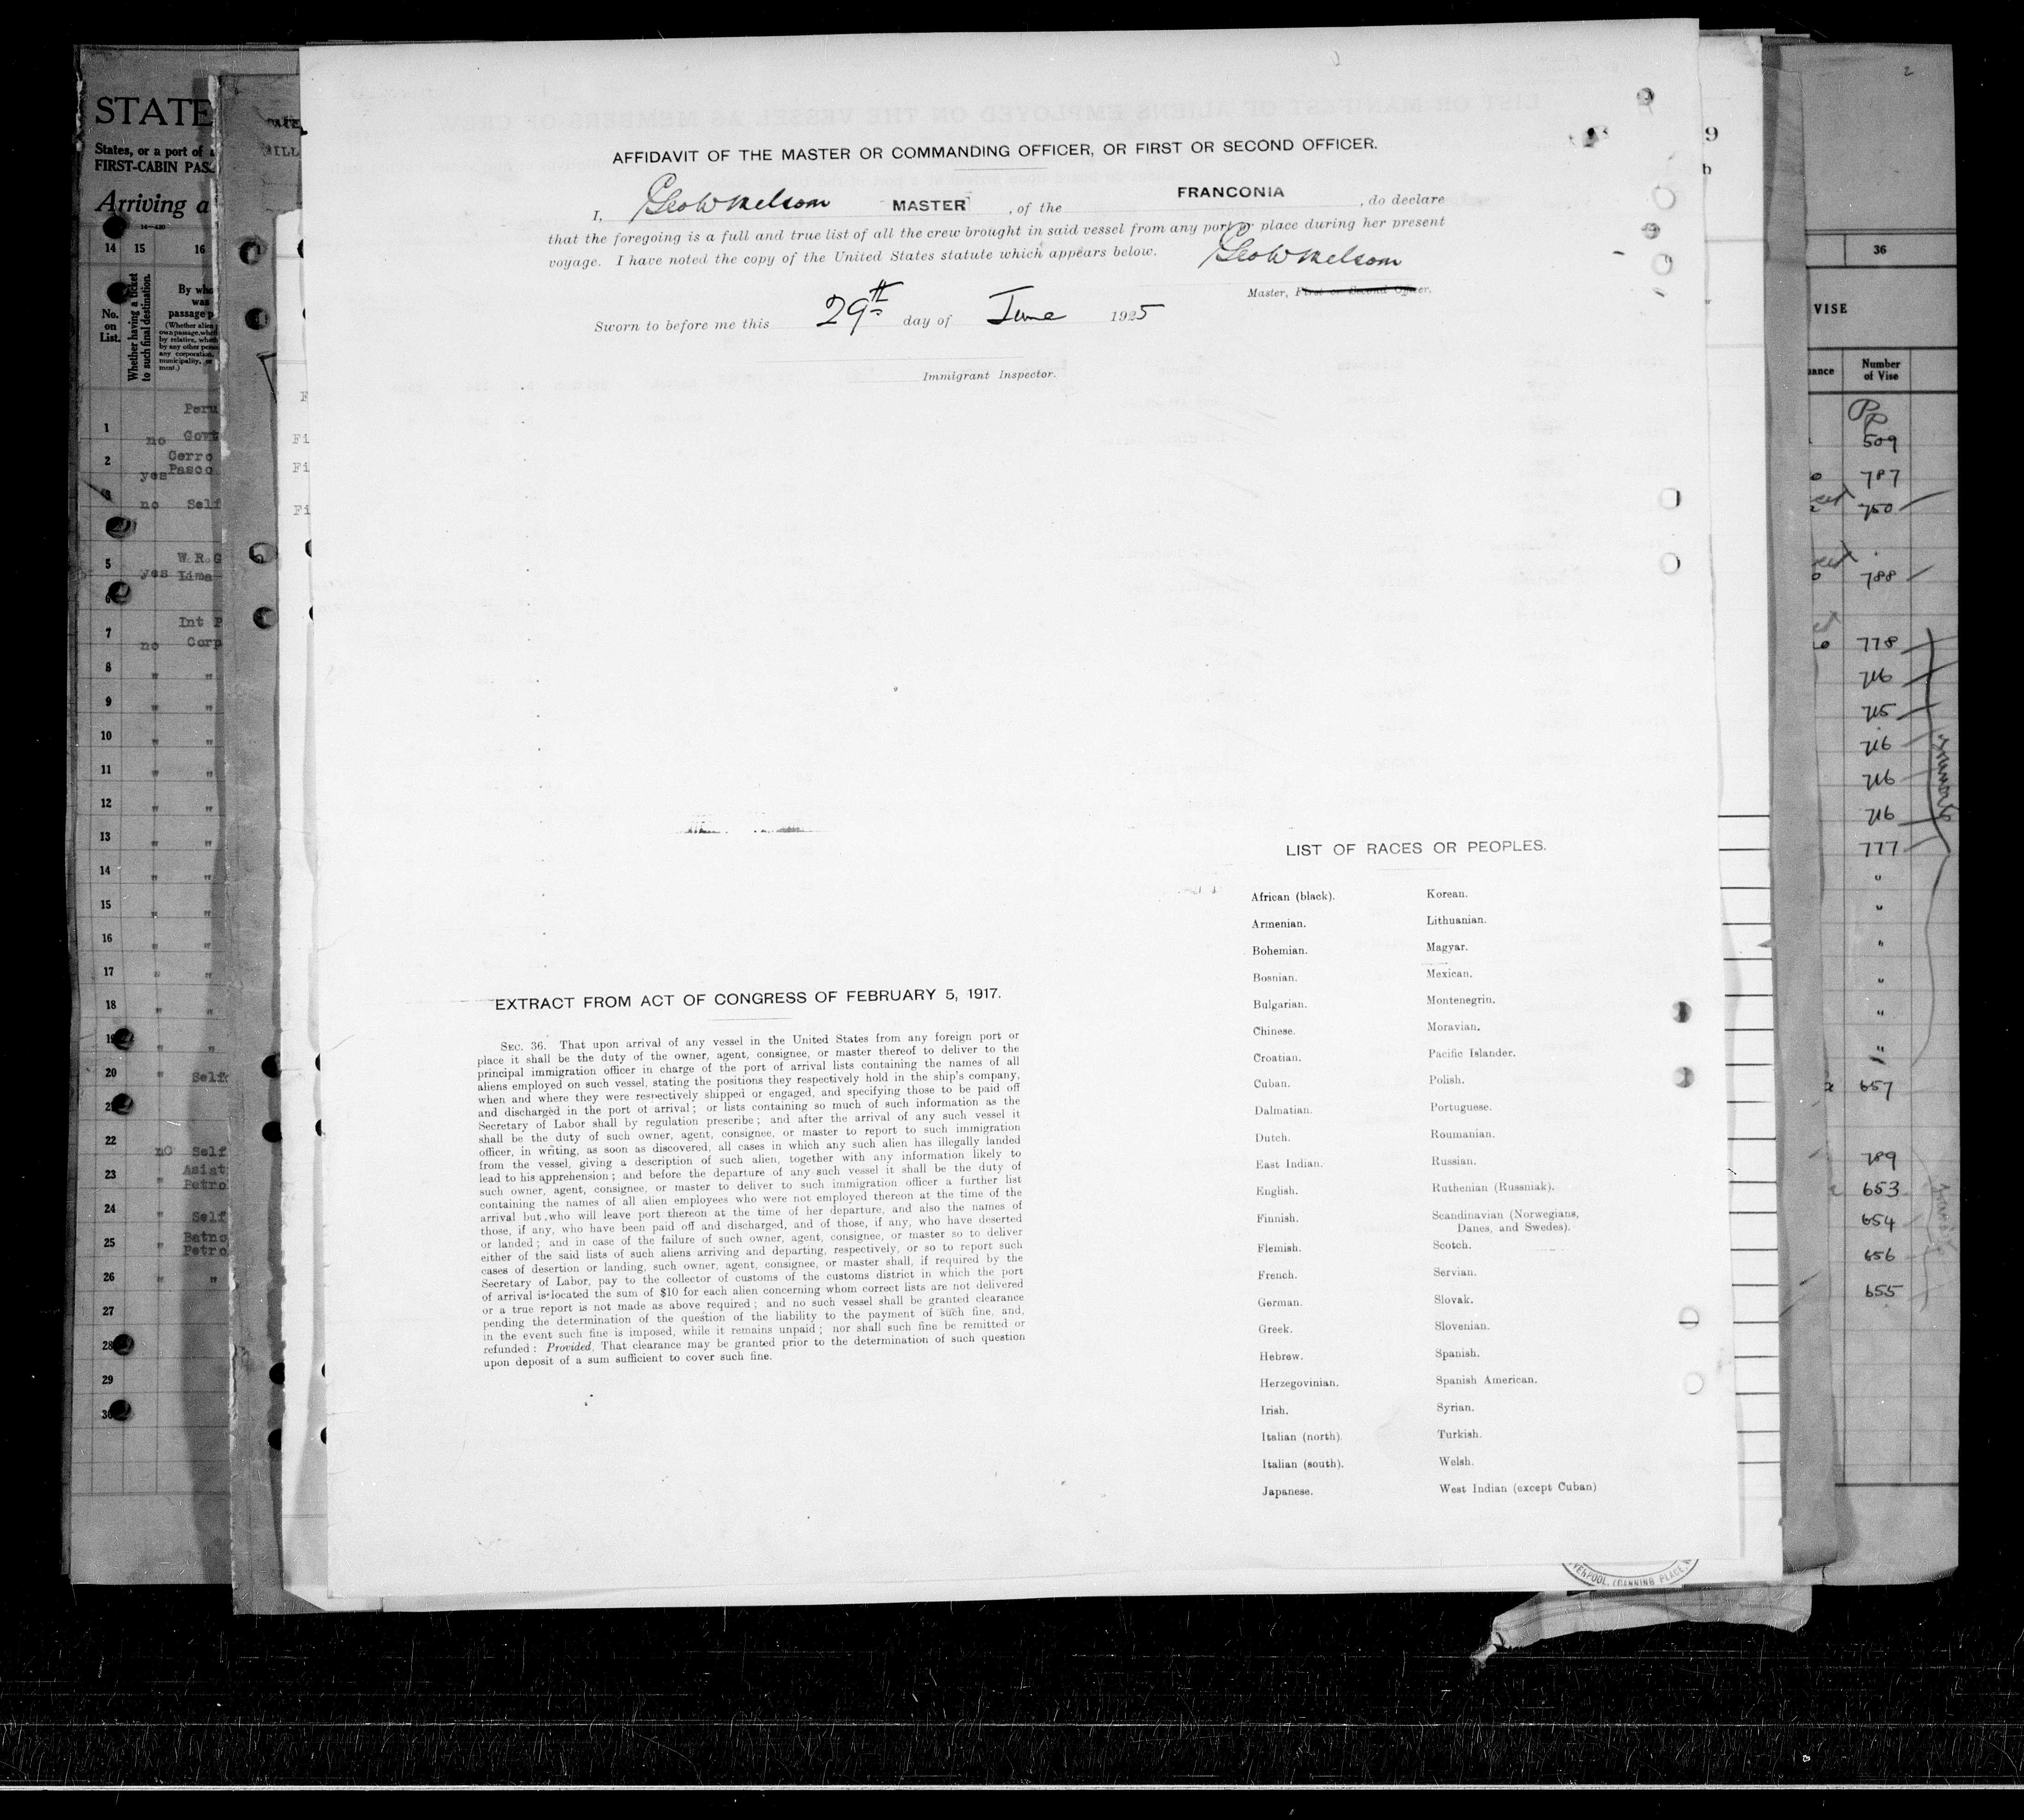 AFFIDAVIT OF THE MASTER OR COMMANDING OFFICER, OR FIRST OR SECOND OFFICER.
I, Geo W Melsom MASTER , of the FRANCONIA , do declare
that the foregoing is a full and true list of all the crew brought in said vessel from any port or place during her present
voyage. I have noted the copy of the United States statute which appears below. Geo W Melsom
Master, First or Second Officer.
Sworn to before me this 29th day of June 1925
Immigrant Inspector.
EXTRACT FROM ACT OF CONGRESS OF FEBRUARY 5, 1917.
SEC. 36. That upon arrival of any vessel in the United States from any foreign port or
place it shall be the duty of the owner, agent, consignee, or master thereof to deliver to the
principal immigration officer in charge of the port of arrival lists containing the names of all
aliens employed on such vessel, stating the positions they respectively hold in the ship's company,
when and where they were respectively shipped or engaged, and specifying those to be paid off
and discharged in the port of arrival; or lists containing so much of such information as the
Secretary of Labor shall by regulation prescribe; and after the arrival of any such vessel it
shall be the duty of such owner, agent, consignee, or master to report to such immigration
officer, in writing, as soon as discovered, all cases in which any such alien has illegally landed
from the vessel, giving a description of such alien, together with any information likely to
lead to his apprehension; and before the departure of any such vessel it shall be the duty of
such owner, agent, consignee, or master to deliver to such immigration officer a further list
containing the names of all alien employees who were not employed thereon at the time of the
arrival but who will leave port thereon at the time of her departure, and also the names of
those, if any, who have been paid off and discharged, and of those, if any, who have deserted
or landed; and in case of the failure of such owner, agent, consignee, or master so to deliver
either of the said lists of such aliens arriving and departing, respectively, or so to report such
cases of desertion or landing, such owner, agent, consignee, or master shall, if required by the
Secretary of Labor, pay to the collector of customs of the customs district in which the port
of arrival is located the sum of $10 for each alien concerning whom correct lists are not delivered
or a true report is not made as above required; and no such vessel shall be granted clearance
pending the determination of the question of the liability to the payment of such fine, and,
in the event such fine is imposed, while it remains unpaid; nor shall such fine be remitted or
refunded: Provided, That clearance may be granted prior to the determination of such question
upon deposit of a sum sufficient to cover such fine.
LIST OF RACES OR PEOPLES.
African (black).
Armenian.
Bohemian.
Bosnian.
Bulgarian.
Chinese.
Croatian.
Cuban.
Dalmatian.
Dutch.
East Indian.
English.
Finnish.
Flemish.
French.
German.
Greek.
Hebrew.
Herzegovinian.
Irish.
Italian (north).
Italian (south).
Japanese.
Korean.
Lithuanian.
Magyar.
Mexican.
Montenegrin.
Moravian.
Pacific Islander.
Polish.
Portuguese.
Roumanian.
Russian.
Ruthenian (Russniak).
Scandinavian (Norwegians,
Danes, and Swedes).
Scotch.
Servian.
Slovak.
Slovenian.
Spanish.
Spanish American.
Syrian.
Turkish.
Welsh.
West Indian (except Cuban)
STATE
States, or a port of
FIRST-CABIN PAS
Arriving a
14 15 16
No.
on
List.
Whether having a ticket
to such final destination.
By who
was
passage p
1 no Peru
Govt
2 yes Cerro
Pasco
no Self
5 yes W R G
Lima
6
7 no Int P
Corp
8 " "
9 " "
10 " "
11 " "
12 " "
13 " "
14 " "
15 " "
16 " "
17 " "
18 " "
19 " "
20 " Self
21
22 no Self
23 " Asiat
Petro
24 " Self
25 " Batno
Petro
26 " "
27
28
29
30
Fi
Fi
Fi
9
b
2
36
VISE
Number
of Vise
509
787
750
788
778
716
715
716
716
716
777
"
"
"
"
"
"
657
789
653
654
656
655